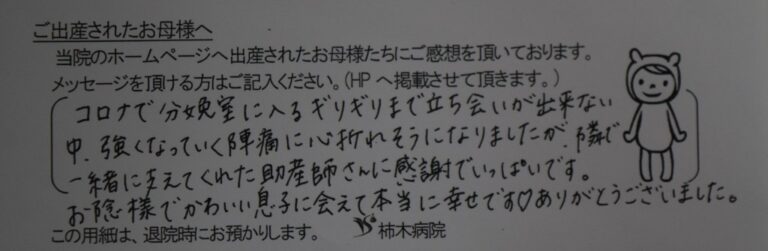 ご出産されたお母様へ
当院のホームページへ出産されたお母様たちにご感想を頂いております。
メッセージを頂ける方はご記入ください。(HPへ掲載させて頂きます。)
コロナで分娩室に入るギリギリまで立ち会いが出来ない
中、強くなっていく陣痛に心折れそうになりましたが、隣で
一緒に支えてくれた助産師さんに感謝でいっぱいです。
お陰様でかわいい息子に会えて本当に幸せです♡ありがとうございました。
この用紙は、退院時にお預かりします。 柿木病院